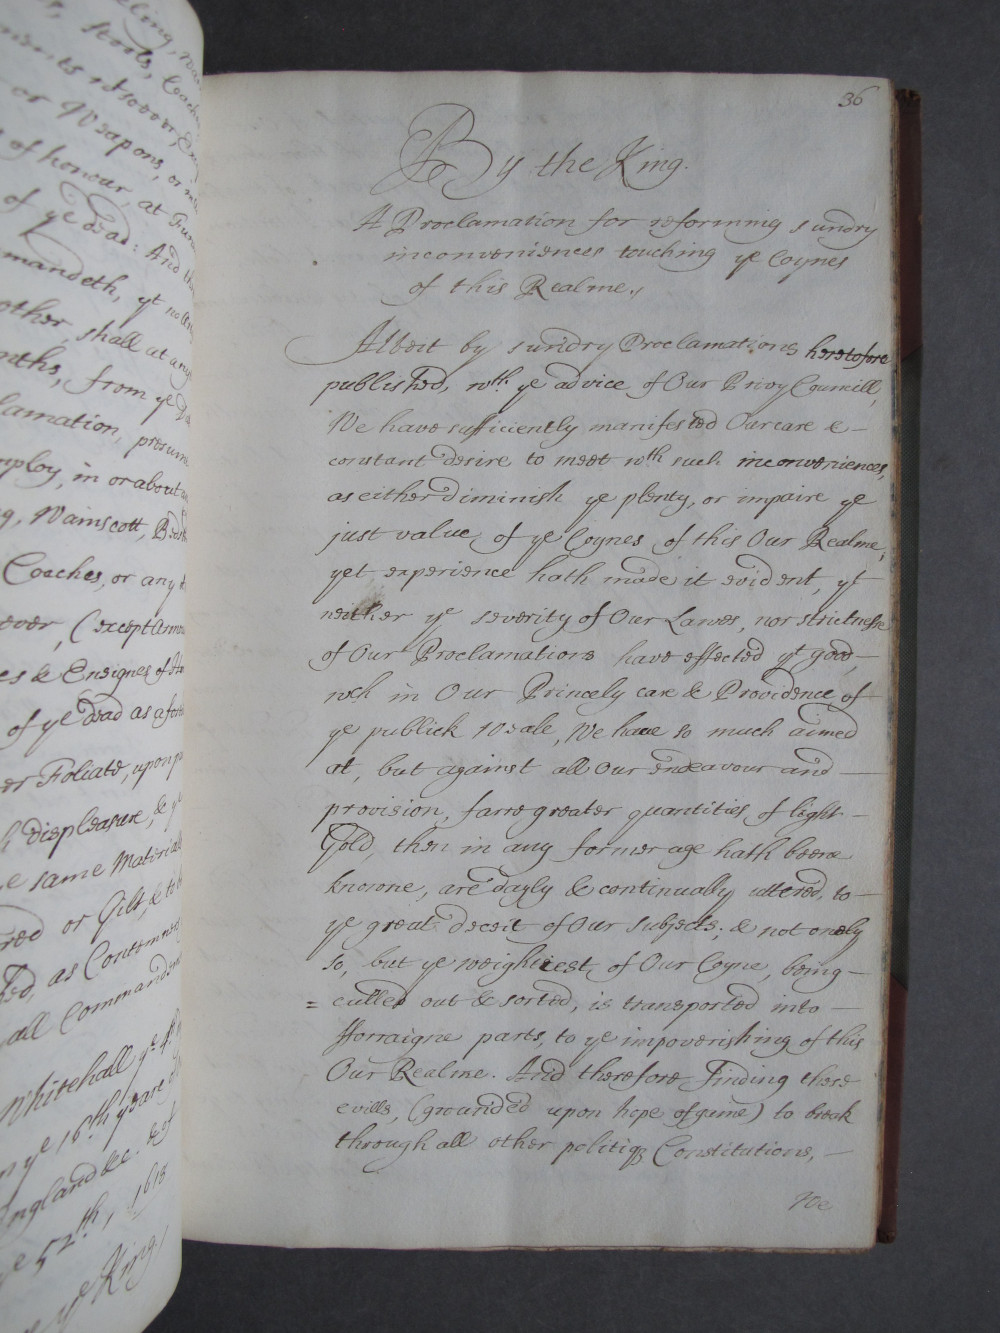 eling, wai
stools, Coach
ments wtsoever Exc
or Weapons, or in
of honour, at Fune
of ye dead: And th
mandeth, yt no Any
other, shall at any
nths, from ye Da
lamation, presume
mploy, in or about
g, Wainscott, Beds
Coaches, or any
ever, (except Armou
es & Ensignes of Ho
of ye dead as afore
er Foliate, upon p
h displeasure, & ye
e same Materials
red or Gilt, & to b
hed, as Contemners
all Commandem
Whitehall ye 4th
n ye 16th yeare of
England &c. & of
ye 52th, 1618
ye King.
36
By the King.
A Proclamation for reforming sundry
inconveniences touching ye Coynes
of this Realme.
Albeit by sundry Proclamations heretofore
published, wth ye advice of Our Privy Councill,
We have sufficiently manifested Our care &
constant desire to meet wth such inconveniences,
as either diminish ye plenty, or impaire ye
just value of ye Coynes of this Our Realme,
yet experience hath made it evident, yt
neither ye severity of Our Lawes, nor strictnesse
of Our Proclamations have effected yt good,
wch in Our Princely care & Providence of
ye publick Weale, We have so much aimed
at, but against all Our endeavour and
provision, farre greater quantities, of light
Gold, then in any former age hath beene
knowne, are dayly & continually uttered, to
ye great deceit of Our Subjects; & not onely
so, but ye weightiest, of Our Coyne, being
= culled out & sorted, is transported into
fforraigne parts, to ye impoverishing of this
Our Realme. And therefore Finding these
evills, (grounded upon hope of gaine) to break
through all other politiq Constitutions,
We